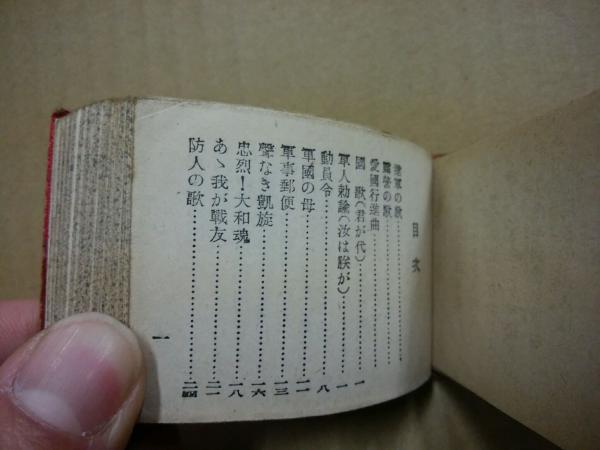 目次
進軍の歌
露営の歌
愛國行進曲
國歌(君が代)……一
軍人勅諭(汝は朕が)……一
動員令……八
軍國の母……一一
軍事郵便……一三
聲なき凱旋……一六
忠烈!大和魂……一八
あゝ我が戰友……二一
防人の歌……二四
一